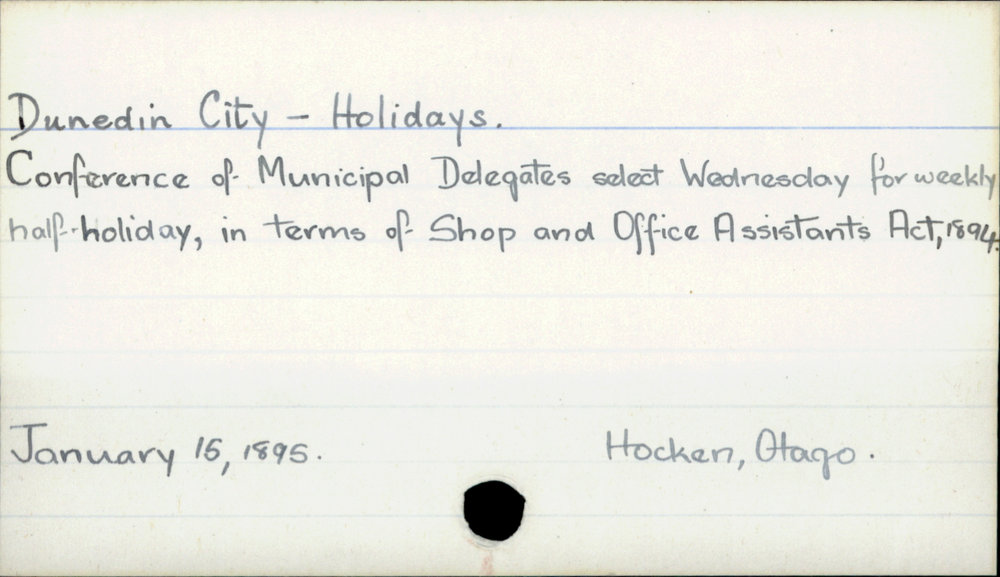 Dunedin City - Holidays.
Conference of Municipal Delegates select Wednesday for weekly
half-holiday, in terms of Shop and Office Assistants Act, 1894.
January 15, 1895.
Hocken, Otago.